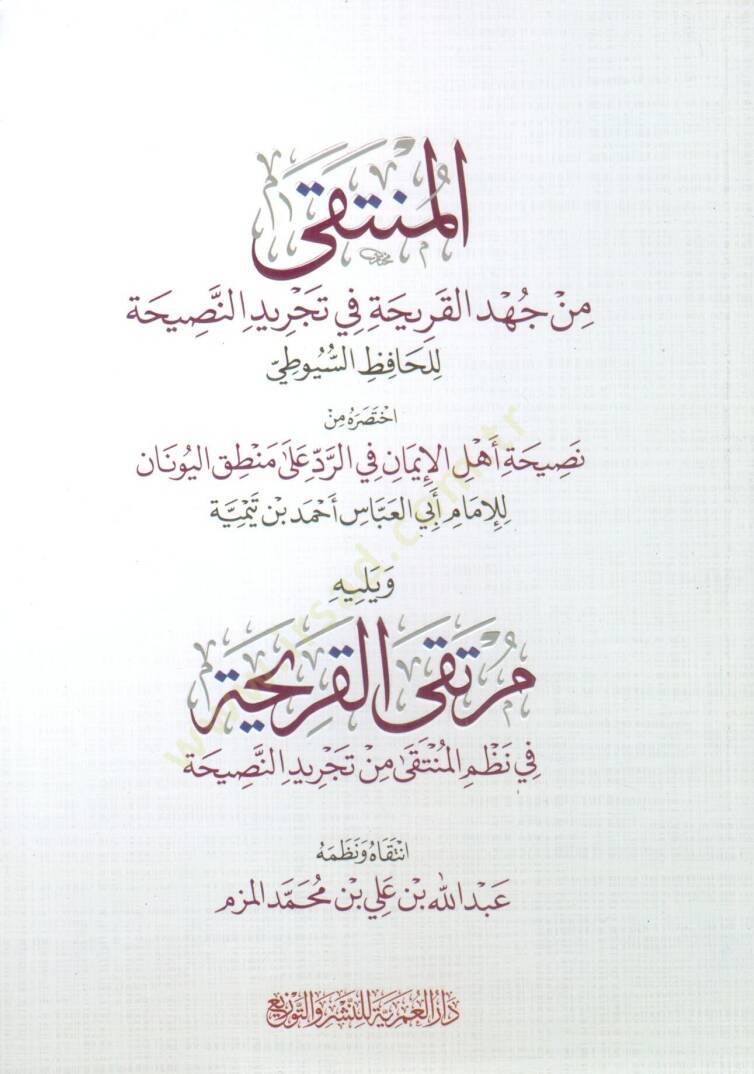 المُنْتَقَى
مِنْ جُهْدِ القَرِيحَةِ فِي تَجْرِيدِ النَّصِيحَة
لِلحَافِظِ السُّيُوطِيّ
اخْتَصَرَهُ مِنْ
نَصِيحَةِ أَهْلِ الإِيمَانِ فِي الرَّدِّ عَلَى مَنْطِقِ اليُونَان
لِلإِمَامِ أَبِي العَبَّاسِ أَحْمَد بْنِ تَيْمِيَّة
وَيَلِيهِ
مُرْتَقَى القَرِيحَةِ
فِي نَظْمِ المُنْتَقَى مِنْ تَجْرِيدِ النَّصِيحَة
انْتَقَاهُ وَنَظَمَهُ
عَبْدُ اللهِ بْن عَلِي بْن مُحَمَّد المزم
دَارُ العُمَرِيَّةِ لِلنَّشْرِ وَالتَّوْزِيع